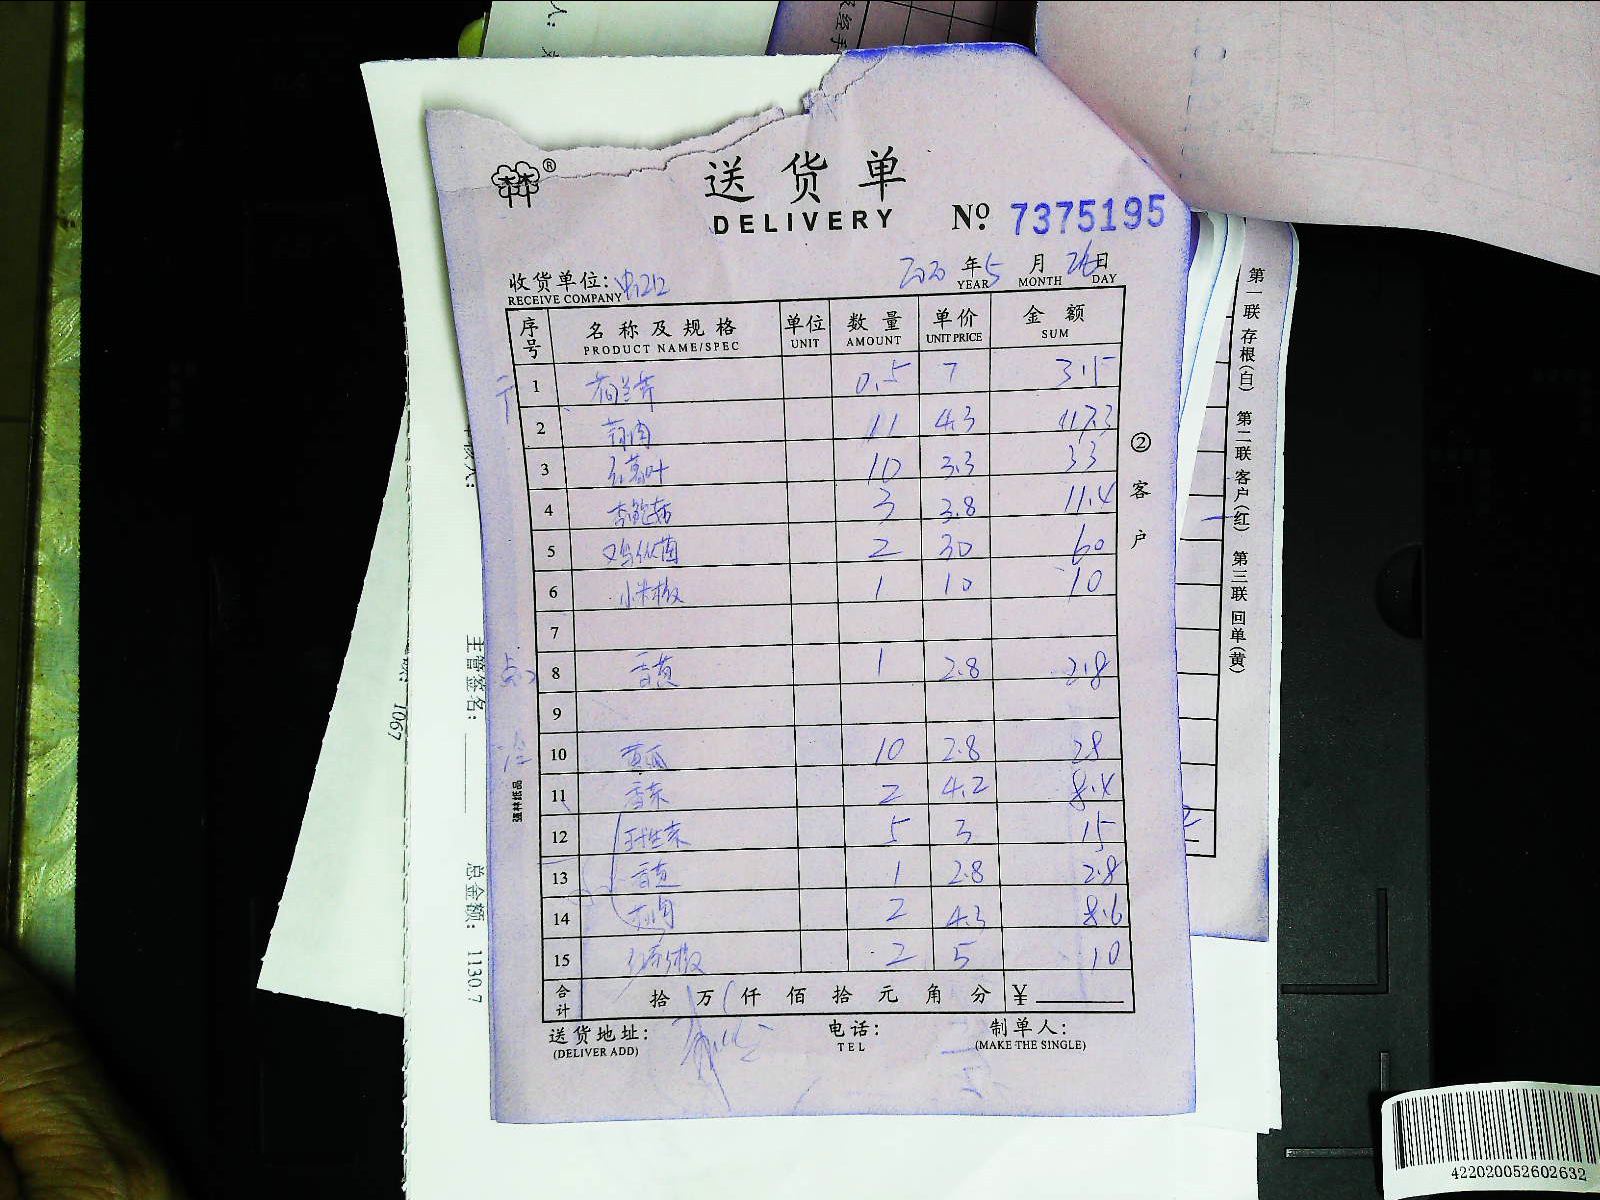 送货单
DELIVERY No. 7375195
收货单位:
RECEIVE COMPANY
2020 年 5 月 26 日
YEAR MONTH DAY
序号 名称及规格 单位 数量 单价 金额
PRODUCT NAME/SPEC UNIT AMOUNT UNIT PRICE SUM
1 荷兰芹 0.5 7 3.5
2 11 4.3 47.3
3 红薯叶 10 3.3 33
4 杏鲍菇 3 3.8 11.4
5 鸡枞菌 2 30 60
6 小米椒 1 10 10
7
8 香葱 1 2.8 2.8
9
10 黄瓜 10 2.8 28
11 香菜 2 4.2 8.4
12 球生菜 5 3 15
13 香葱 1 2.8 2.8
14 2 4.3 8.6
15 2 5 10
合计 拾 万 仟 佰 拾 元 角 分 ¥
送货地址: 电话: 制单人:
(DELIVER ADD) TEL (MAKE THE SINGLE)
② 客户
强林纸品
第一联 存根(白) 第二联 客户(红) 第三联 回单(黄)
主管签名:
总金额: 1130.7
1067
422020052602632